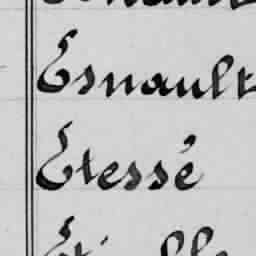 Esnault
Etessé